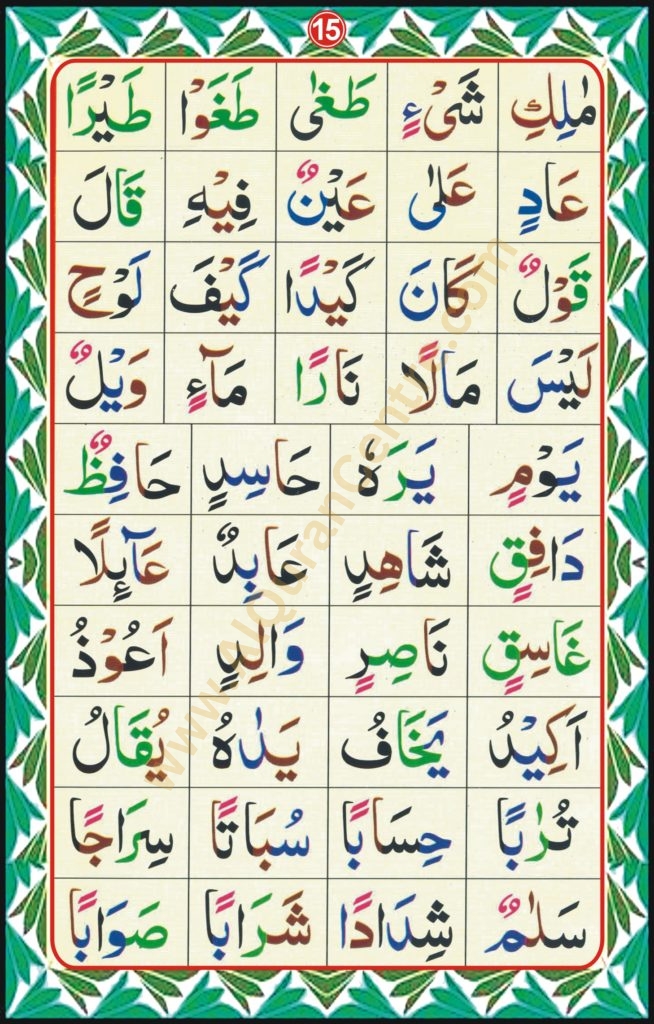 15
مٰلِكِ شَیْءٍ طَغٰی طَغَوْا طَیْرًا
عَادٍ عَلٰی عَیْنٌ فِیْهِ قَالَ
قَوْلٌ كَانَ كَیْدًا كَیْفَ لَوْحٍ
لَیْسَ مَالًا نَارًا مَآءٍ وَیْلٌ
یَوْمٍ یَرَهٗ حَاسِدٍ حَافِظٌ
دَافِقٍ شَاهِدٍ عَابِدٌ عَآئِلًا
غَاسِقٍ نَاصِرٍ وَالِدٍ اَعُوْذُ
اَكِیْدُ یَخَافُ یَدٰهُ یُقَالُ
تُرٰبًا حِسَابًا سُبَاتًا سِرَاجًا
سَلٰمٌ شِدَادًا شَرَابًا صَوَابًا
www.AlQuranCentre.com